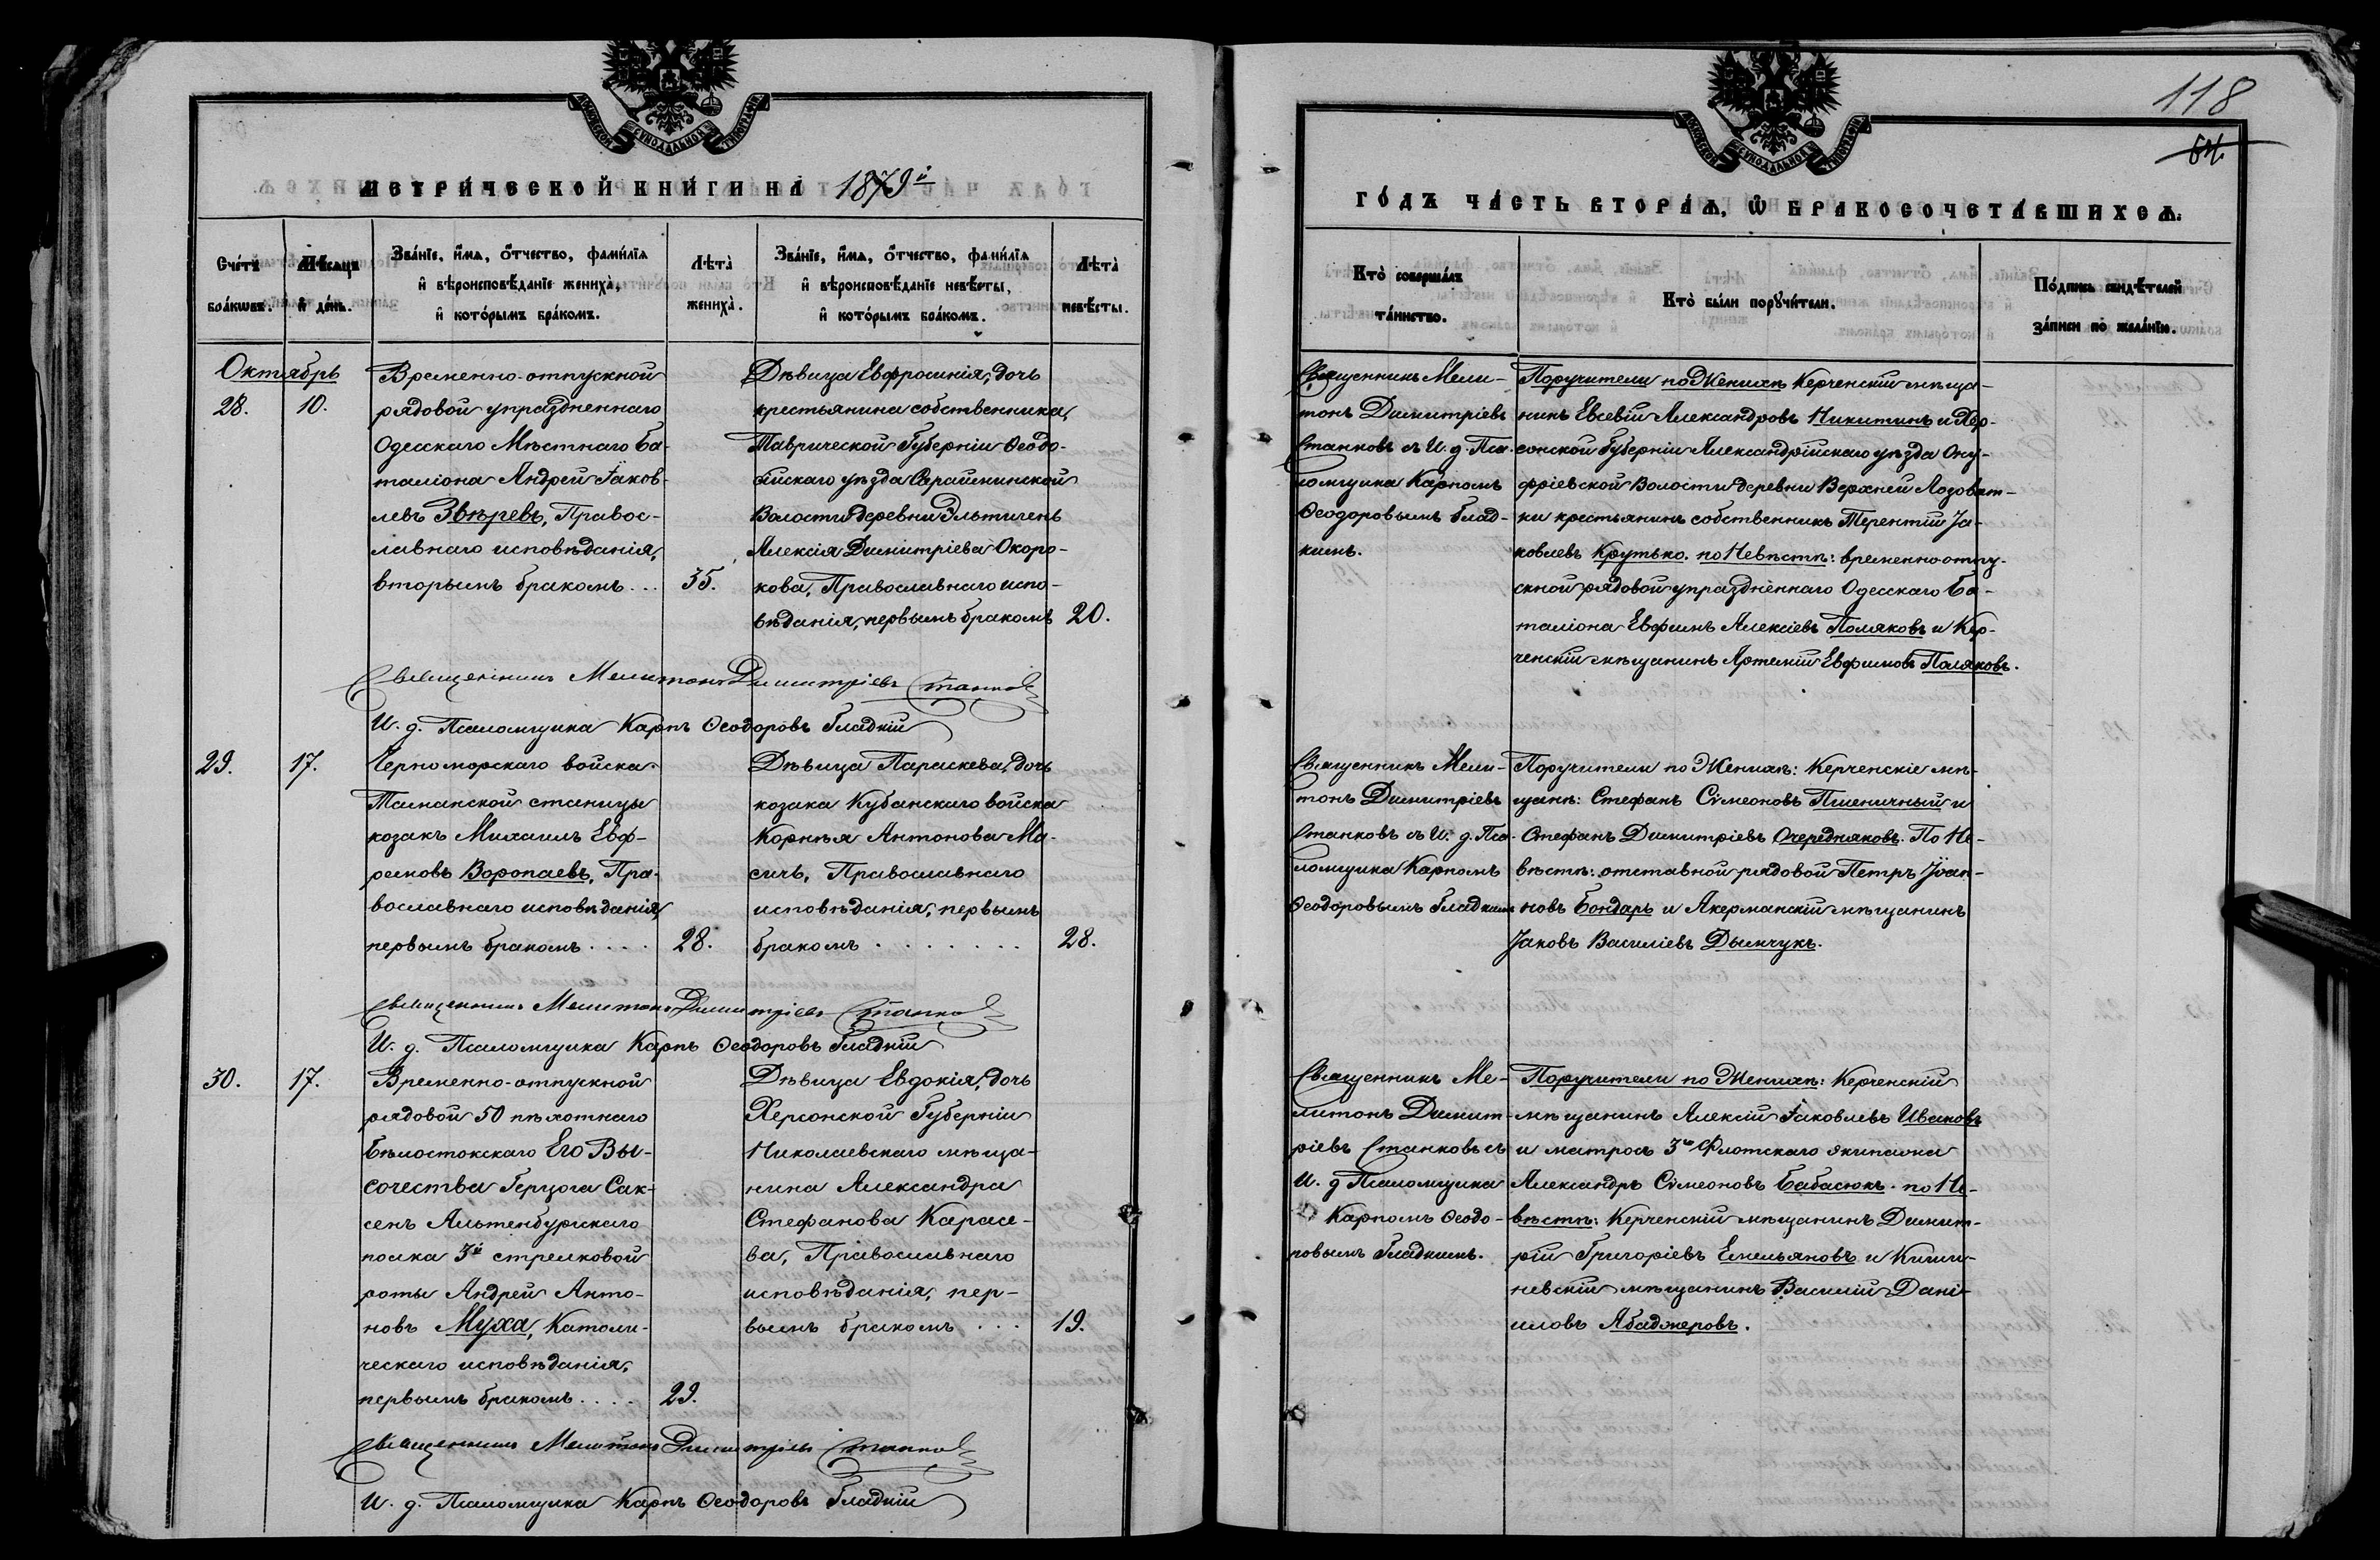 МОСКОВСКОЙ СѴНОДАЛЬНОЙ ТИПОГРАФІИ
МЕТРИЧЕСКОЙ КНИГИ НА 1879й
Счетъ браковъ.
Мѣсяцъ и день.
Званіе, имя, отчество, фамилія
и вѣроисповѣданіе жениха,
и которымъ бракомъ.
Лѣта
жениха.
Званіе, имя, отчество, фамилія
и вѣроисповѣданіе невѣсты,
и которымъ бракомъ.
Лѣта
невѣсты.
Октябрь
28. 10.
Временно-отпускной
рядовой упраздненнаго
Одесскаго Мѣстнаго Ба-
таліона Андрей Іаков-
левъ Звѣревъ, Правос-
лавнаго исповѣданія,
вторымъ бракомъ... 35.
Дѣвица Евфросинія, дочь
крестьянина собственника,
Таврической Губерніи Ѳеодо-
сійскаго уѣзда Сарайминской
Волости деревни Эльтигень
Алексія Димитріева Окоро-
кова, Православнаго испо-
вѣданія, первымъ бракомъ 20.
Священникъ Мелитонъ Димитріевъ Станковъ
И. д. Псаломщика Карпъ Ѳеодоровъ Гладкій
29. 17.
Черноморскаго войска
Таманской станицы
козакъ Михаилъ Евф-
ремовъ Воропаевъ, Пра-
вославнаго исповѣданія,
первымъ бракомъ.... 28.
Дѣвица Параскева, дочь
козака Кубанскаго войска
Корнѣя Антонова Ма-
сичъ, Православнаго
исповѣданія, первымъ
бракомъ....... 28.
Священникъ Мелитонъ Димитріевъ Станковъ
И. д. Псаломщика Карпъ Ѳеодоровъ Гладкій
30. 17.
Временно-отпускной
рядовой 50 пѣхотнаго
Бѣлостокскаго Его Вы-
сочества Герцога Сак-
сенъ Альтенбургскаго
полка 3й стрелковой
роты Андрей Анто-
новъ Муха, Католи-
ческаго исповѣданія,
первымъ бракомъ.... 29.
Дѣвица Евдокія, дочь
Херсонской Губерніи
Николаевскаго мѣща-
нина Александра
Стефанова Карасе-
ва, Православнаго
исповѣданія, пер-
вымъ бракомъ... 19.
Священникъ Мелитонъ Димитріевъ Станковъ
И. д. Псаломщика Карпъ Ѳеодоровъ Гладкій
118
64.
МОСКОВСКОЙ СѴНОДАЛЬНОЙ ТИПОГРАФІИ
ГОДЪ ЧАСТЬ ВТОРАЯ, Ѡ БРАКОСОЧЕТАВШИХСЯ.
Кто совершалъ
таинство.
Кто были поручители.
Подпись свидѣтелей
записи по желанію.
Священникъ Мели-
тонъ Димитріевъ
Станковъ съ И. д. Пса-
ломщика Карпомъ
Ѳеодоровымъ Глад-
кимъ.
Поручители по Женихѣ Керченскій мѣща-
нинъ Евсевій Александровъ Никитинъ и Хер-
сонской Губерніи Александрійскаго уѣзда Ону-
фріевской Волости деревни Верхней Лозоват-
ки крестьянинъ собственникъ Терентій Іа-
ковлевъ Крутько. по Невѣстѣ: временно-отпу-
скной рядовой упраздненнаго Одесскаго Ба-
таліона Евфимъ Алексіевъ Поляковъ и Кер-
ченскій мѣщанинъ Артемій Евфимовъ Поляковъ.
Священникъ Мели-
тонъ Димитріевъ
Станковъ съ И. д. Пса-
ломщика Карпомъ
Ѳеодоровымъ Гладкимъ
Поручители по Женихѣ: Керченскіе мѣ-
щане: Стефанъ Сѵмеоновъ Пшеничный и
Стефанъ Димитріевъ Очередняковъ. По Не-
вѣстѣ: отставной рядовой Петръ Іоан-
новъ Бондарь и Акерманскій мѣщанинъ
Іаковъ Василіевъ Дымчукъ.
Священникъ Ме-
литонъ Димит-
ріевъ Станковъ съ
И. д Псаломщика
Карпомъ Ѳеодо-
ровымъ Гладкимъ.
Поручители по Женихѣ: Керченскій
мѣщанинъ Алексій Іаковлевъ Ивановъ
и матросъ 3го Флотскаго экипажа
Александръ Сѵмеоновъ Бабасюкъ. по Не-
вѣстѣ: Керченскій мѣщанинъ Димит-
рій Григоріевъ Емельяновъ и Киши-
невскій мѣщанинъ Василій Дані-
иловъ Абаджеровъ.